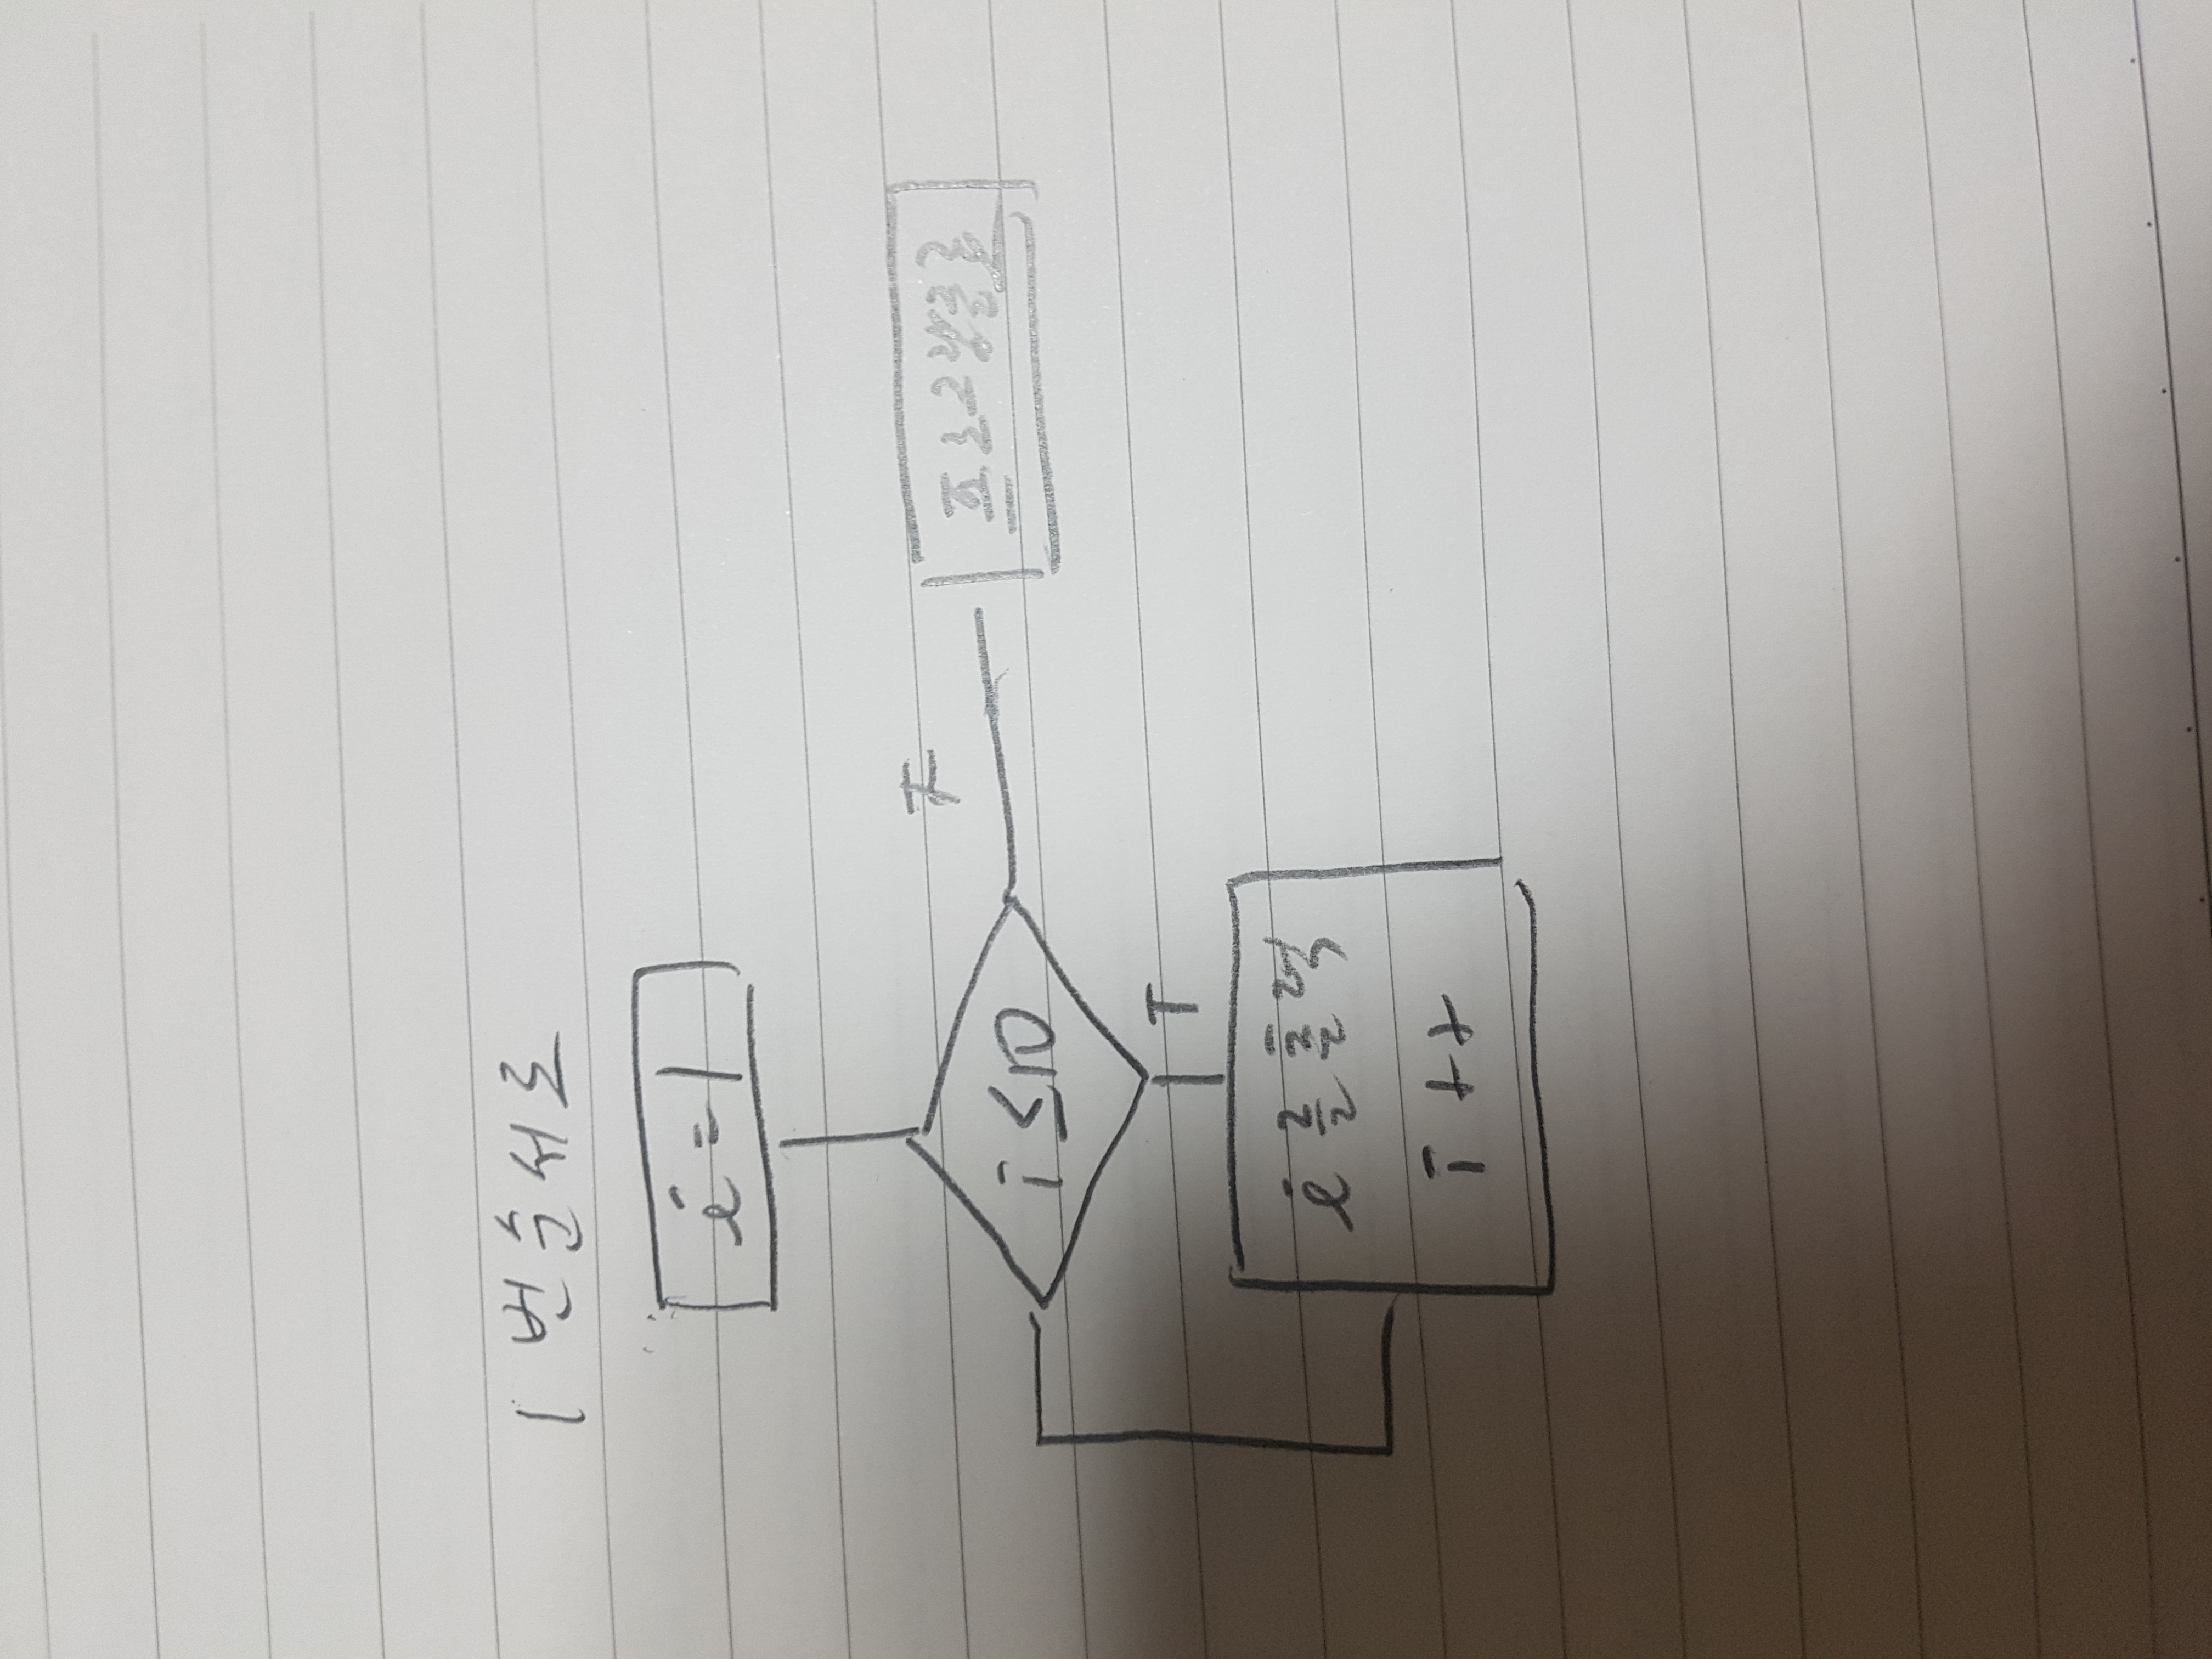 1번순서로
i = 1
i ≤ 10
F
프로그램종료
T
i를출력
i ++